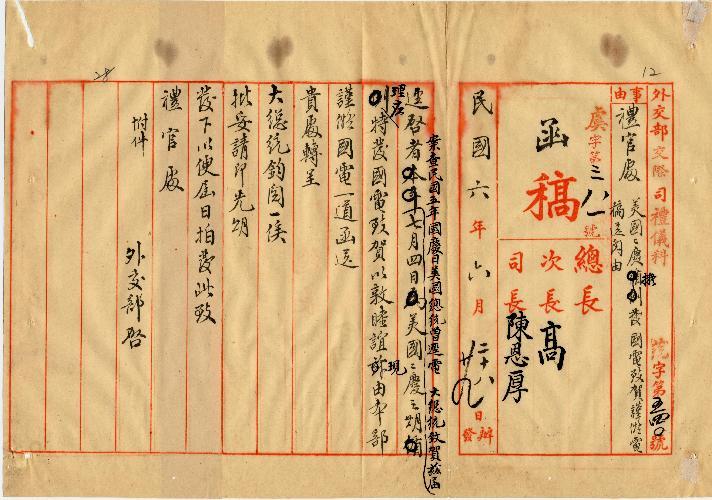 12
28
外交部交際司禮儀科
字第
號
事由
禮官處
美國國慶
擬
發國電致賀謹擬電
稿送
由
虞字第三八一號
函稿
總長
次長 高
司長 陳恩厚
民國六年六月
日
辦
發
案查民國五年國慶日美國總統曾逕電 大總統致賀茲屆
逕啓者
七月四日
美國國慶之期
理應
特發國電致賀以敦睦誼
現
由本部
謹擬國電一道函送
貴處轉呈
大總統鈞閱一俟
批妥請即先期
發下以便屆日拍發此致
禮官處
附件
外交部啓